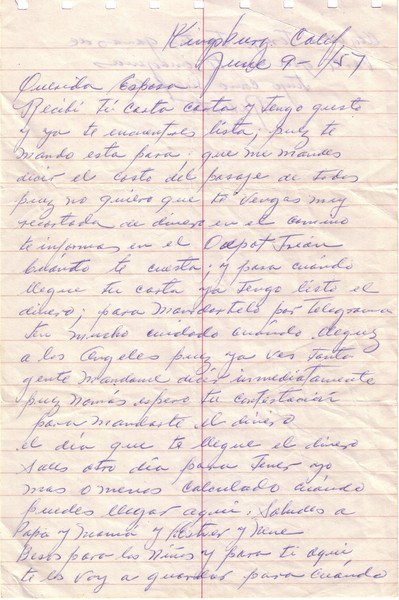 Kingsburg Calif
June 9-1957
Querida Esposa
Recibí tú carta carta y tengo gusto
y ya te encuentres lista; puez te
mando esta para; que me mandes
decir el costo del pasaje de todos
puez no quiero que te vengas muy
recortada de dinero en el camino
te informas en el Deepot Trián
cuándo te cuesta; y para cuándo
llegue tu carta ya tengo listo el
dinero; para mandartelo por telegrama
ten mucho cuidado cuándo llegues
a los Angeles puez ya ves tanta
gente mandame decir inmediatamente
puez nomás espero tu contestación
para mandarte el dinero
el día que te llegue el dinero
sales otro día para tener yo
mas o menos calculado cuándo
puedes llegar aquí; Saludes a
Papá y Mamá y Esther y Nane
Besos para los Niños y para ti aqui
te los voy a guardar para cuándo